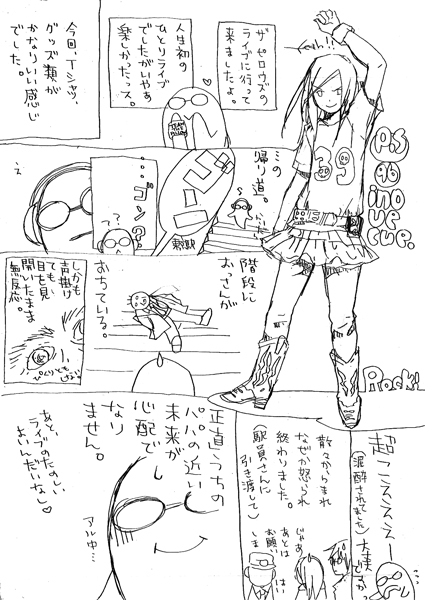 ザ ゼロウズの
ライブに行って
来ましたよ。
人生初の
ひとりライブ
でしたがいやぁ
楽しかったっス。
今回、Tシャツ、
グッズ類が
かなりいい感じ
でした。
Yeah!!
39
P.S
96
inoue
cup.
Rock!
ミの
帰り道。
ゴン
…ゴン?
??
え
階段に
おっさんが
おちている。
しかも
声掛け
ても、
目を見
開いたまま
無反応。
ぴくりとも
超こえぇぇー
(泥酔されてました)
大丈夫
ですか
散々からまれ
なぜか怒られ
終わりました。
(駅員さんに
引き渡して)
じゃあ
あとは
お願い
しま
はい
正直うちの
パパの近い
未来が
心配で
なり
ません。
アル中…
あと、
ライブのたのしい
よいんだいなし♡